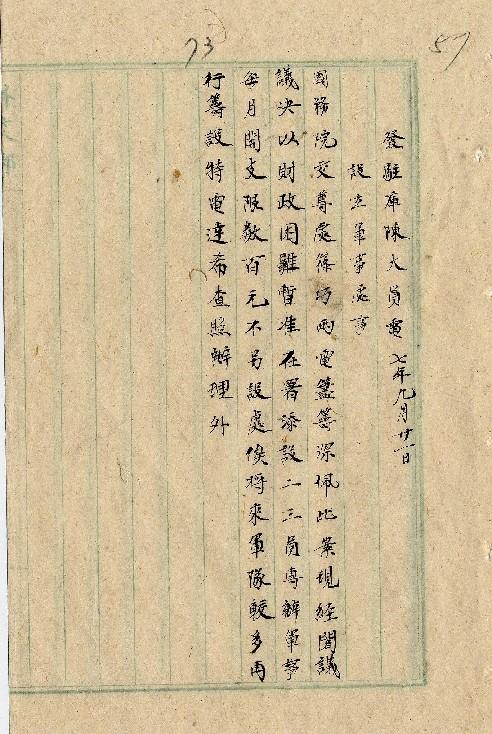 73
57
發駐庫陳大員電 七年九月廿一日
設立軍事處事
國務院交尊處篠巧兩電藎籌深佩此案現經閣議
議決以財政困難暫准在署添設二三員專辦軍事
每月開支限數百元不另設處俟將來軍隊較多再
行籌設特電達希查照辦理外